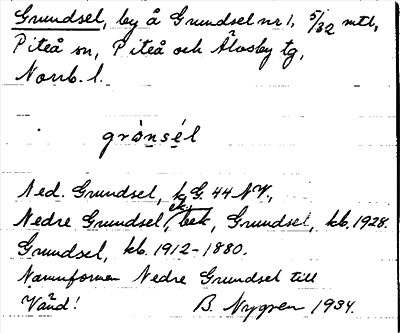 Grundsel, by å Grundsel nr 1, 5/32 mtl,
Piteå sn, Piteå och Älvsby tg,
Norrb. l.
grònsél
Ned. Grundsel, G. 44 NV,
Nedre Grundsel, ek, bek, Grundsel, kb. 1928.
Grundsel, kb. 1912-1880.
Namnformen Nedre Grundsel till
Vänd! B. Nygren 1934.